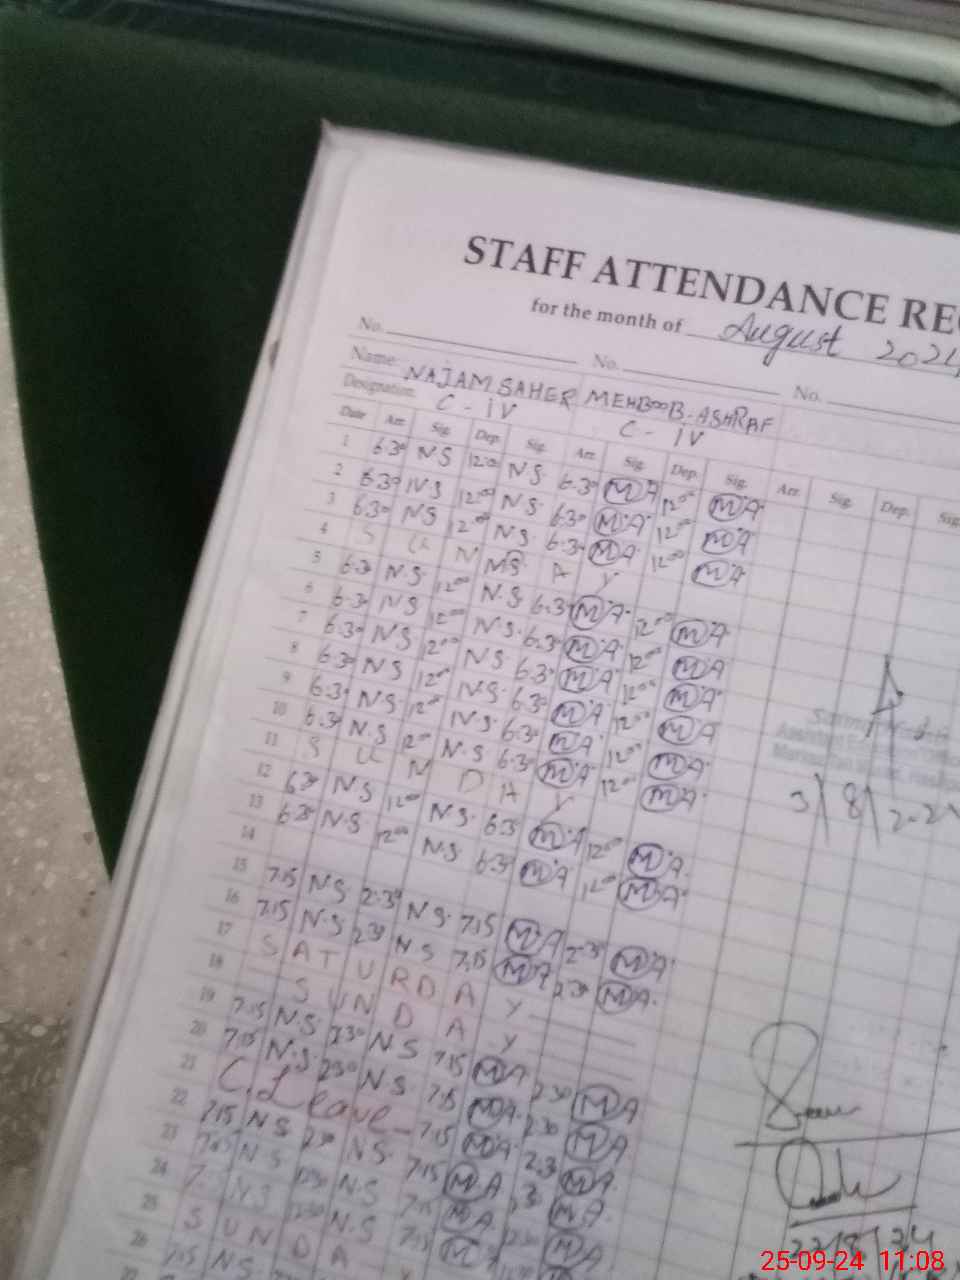 STAFF ATTENDANCE RE
for the month of August 2024
No. No. No.
Name NAJAM SAHER MEHBOOB ASHRAF
Designation C-IV C-IV
Date Arr. Sig. Dep. Sig. Arr. Sig. Dep. Sig. Arr. Sig. Dep. Sig.
1 6.30 NS 12:00 N.S. 6.30 M.A 12:00 M.A
2 6.30 NS 12:00 N.S. 6.30 M.A 12:00 M.A
3 6.30 NS 12:00 N.S. 6.30 M.A 12:00 M.A
4 S U N A Y
5 6.30 N.S. 12:00 N.S 6.30 M.A. 12:00 M.A
6 6.30 NS 12:00 N.S. 6.30 M.A 12:00 M.A
7 6.30 NS 12:00 NS 6.30 M.A 12:00 M.A
8 6.30 NS 12:00 N.S. 6.30 M.A 12:00 M.A
9 6.30 N.S. 12:00 N.S. 6.30 M.A 12:00 M.A
10 6.30 N.S 12:00 N.S 6.30 M.A 12:00 M.A.
11 S U N D A Y
12 6.30 NS 12:00 N.S. 6.30 M.A 12:00 M.A.
13 6.30 N.S 12:00 N.S 6.30 M.A 12:00 M.A
14
15 7.15 N.S 2.30 N.S. 7.15 M.A 2.30 M.A
16 7.15 N.S 2.30 NS 7.15 M.A 2.30 M.A.
17 S A T U R D A Y
18 S U N D A Y
19 7.15 N.S. 2.30 NS 7.15 M.A 2.30 M.A
20 7.15 N.S. 2.30 N.S. 7.15 M.A. 2.30 M.A
21 C. Leave 7.15 M.A 2.30 M.A
22 7.15 NS 2.30 N.S. 7.15 M.A 2.30 M.A.
23 7.15 NS 2.30 N.S 7.15 M.A 2.30 M.A
24 7. N.S 2.30 N.S 7.15 M. 2.30 M.A
25 S U N D A
26 7.15 NS
3/8/2024
22/8/24
25-09-24 11:08